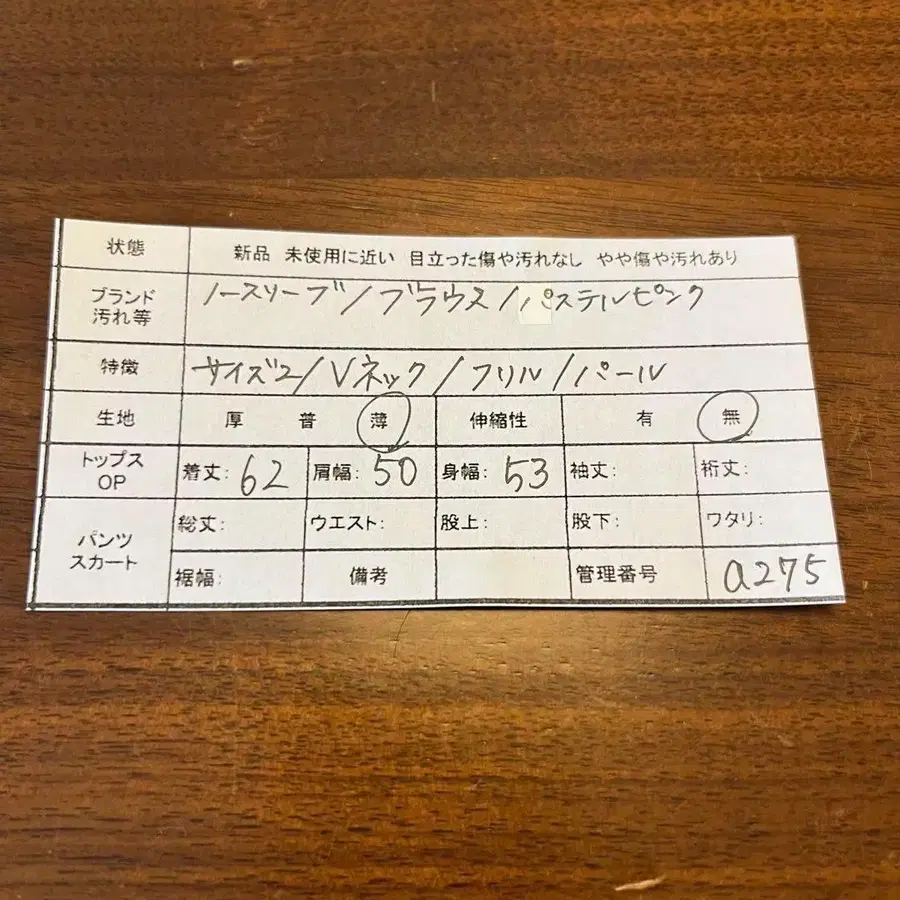 状態 新品 未使用に近い 目立った傷や汚れなし やや傷や汚れあり
ブランド 汚れ等 ノースリーブ/ブラウス/パステルピンク
特徴 サイズ2/Vネック/フリル/パール
生地 厚 普 薄 伸縮性 有 無
トップス OP 着丈: 62 肩幅: 50 身幅: 53 袖丈: 裄丈:
パンツ スカート 総丈: ウエスト: 股上: 股下: ワタリ:
裾幅: 備考 管理番号 a275